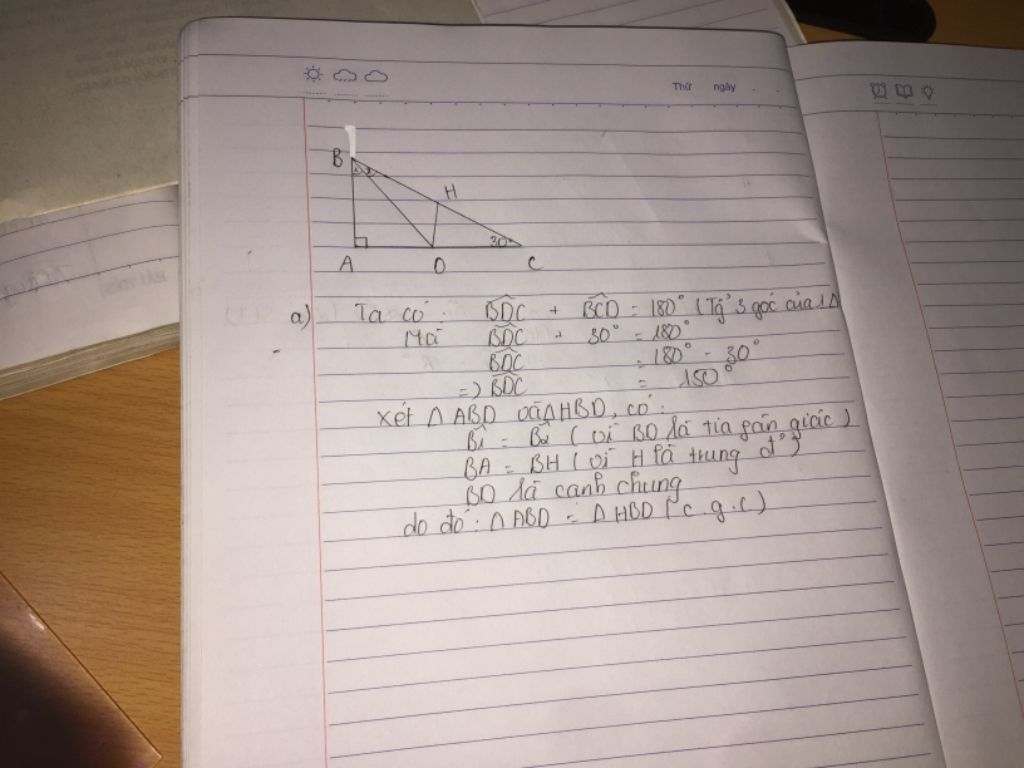 Thứ ngày
B
H
30°
A D C
a) Ta có: BDC + BCD = 180° (Tg 3 góc của 1 Δ
Mà BDC + 30° = 180°
BDC = 180° - 30°
=) BDC = 150°
xét Δ ABD và ΔHBD, có:
B1 = B2 (vì BD là tia gân giác)
BA = BH (vì H là trung đ')
BD là cạnh chung
do đó: Δ ABD = Δ HBD (c g.c)